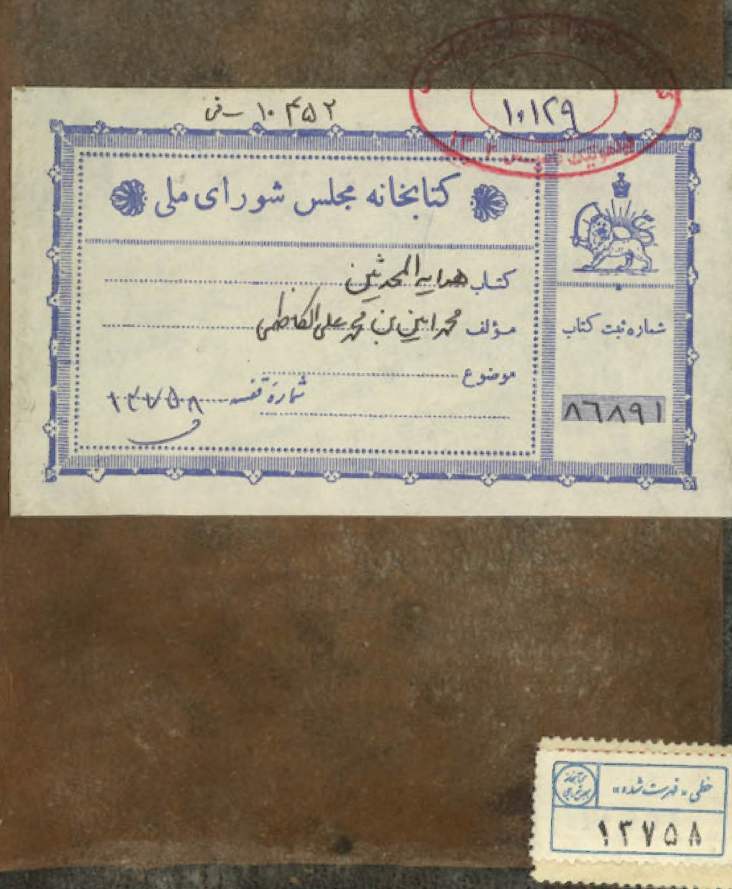 ۱۰۴۵۲ - فی
۱۰۱۲۹
کتابخانه مجلس شورای ملی
کتاب هدایه المحدثین
مؤلف محمد امین بن محمد علی الکاظمی
موضوع
شماره قفسه ۱۲۷۵۸
شماره ثبت کتاب
۸۶۸۹۱
خطی «فهرست شده»
۱۲۷۵۸